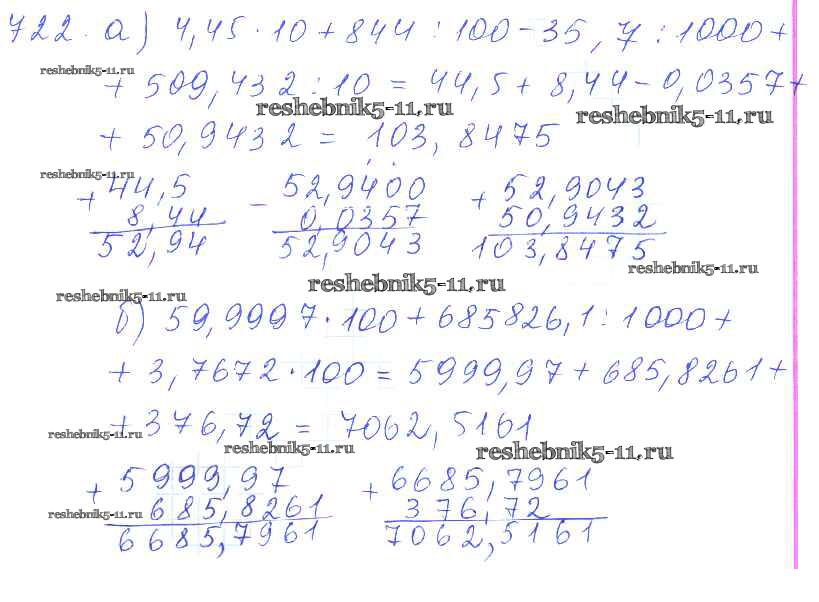 722. а) 4,45·10+844:100-35,7:1000+
reshebnik5-11.ru
+ 509,432:10 = 44,5+8,44-0,0357+
reshebnik5-11.ru reshebnik5-11.ru
+ 50,9432 = 103,8475
reshebnik5-11.ru
+44,5 -52,9400 +52,9043
8,44 0,0357 50,9432
52,94 52,9043 103,8475
reshebnik5-11.ru
reshebnik5-11.ru
reshebnik5-11.ru
б) 59,9997·100+685826,1:1000+
+ 3,7672·100=5999,97+685,8261+
+ 376,72 = 7062,5161
reshebnik5-11.ru
reshebnik5-11.ru reshebnik5-11.ru
+5999,97 +6685,7961
685,8261 376,72
reshebnik5-11.ru
6685,7961 7062,5161